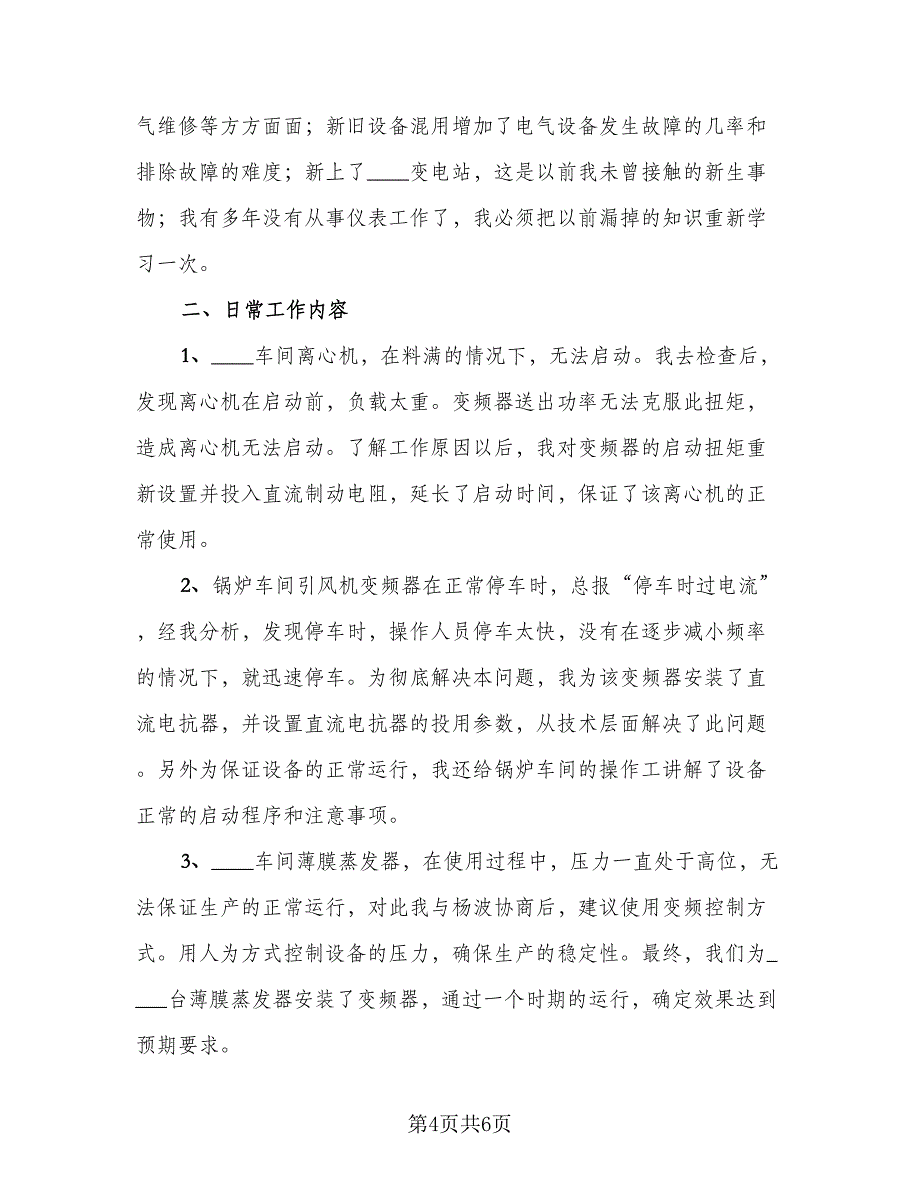 气维修等方方面面；新旧设备混用增加了电气设备发生故障的几率和
排除故障的难度；新上了____变电站，这是以前我未曾接触的新生事
物；我有多年没有从事仪表工作了，我必须把以前漏掉的知识重新学
习一次。
二、日常工作内容
1、____车间离心机，在料满的情况下，无法启动。我去检查后，
发现离心机在启动前，负载太重。变频器送出功率无法克服此扭矩，
造成离心机无法启动。了解工作原因以后，我对变频器的启动扭矩重
新设置并投入直流制动电阻，延长了启动时间，保证了该离心机的正
常使用。
2、锅炉车间引风机变频器在正常停车时，总报“停车时过电流”
，经我分析，发现停车时，操作人员停车太快，没有在逐步减小频率
的情况下，就迅速停车。为彻底解决本问题，我为该变频器安装了直
流电抗器，并设置直流电抗器的投用参数，从技术层面解决了此问题
。另外为保证设备的正常运行，我还给锅炉车间的操作工讲解了设备
正常的启动程序和注意事项。
3、____车间薄膜蒸发器，在使用过程中，压力一直处于高位，无
法保证生产的正常运行，对此我与杨波协商后，建议使用变频控制方
式。用人为方式控制设备的压力，确保生产的稳定性。最终，我们为_
___台薄膜蒸发器安装了变频器，通过一个时期的运行，确定效果达到
预期要求。
第4页共6页